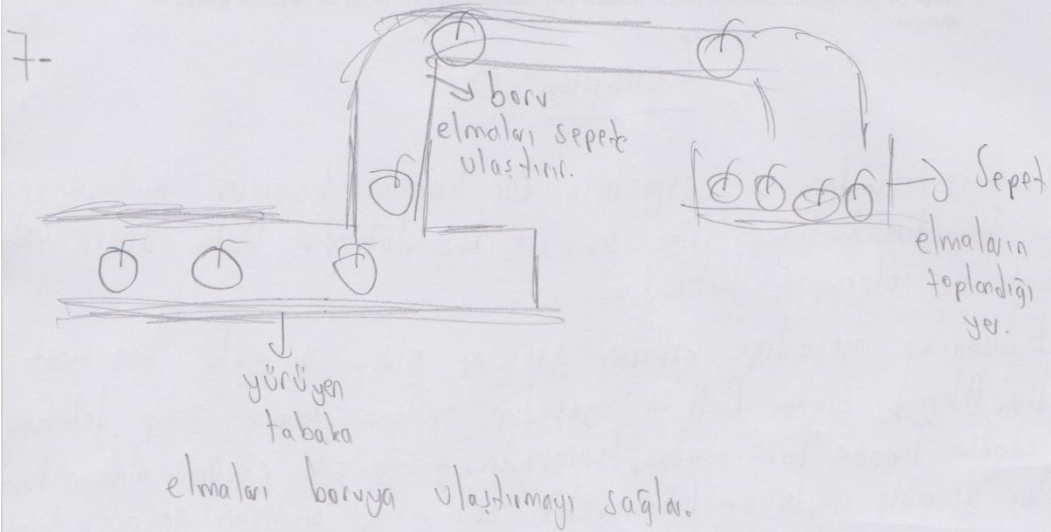 7-
boru
elmaları sepete
ulaştırır.
Sepet
elmaların
toplandığı
yer.
yürüyen
tabaka
elmaları boruya ulaştırmayı sağlar.